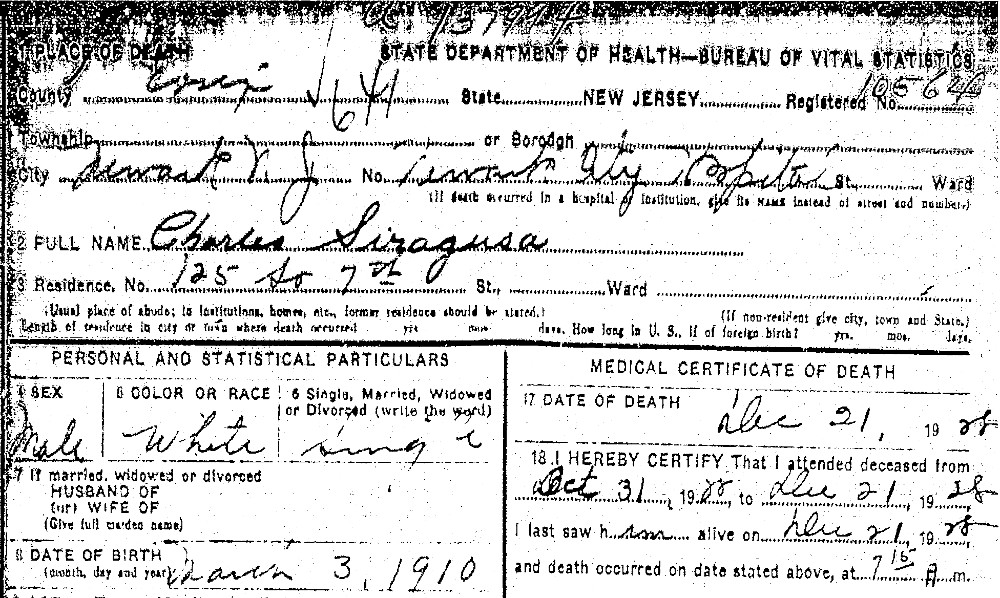 1 PLACE OF DEATH
STATE DEPARTMENT OF HEALTH—BUREAU OF VITAL STATISTICS
County Essex 641 State NEW JERSEY Registered No. 10564
Township or Borough
City Newark N. J No. Newark City Hospital St. Ward
(If death occurred in a hospital or institution, give its NAME instead of street and number.)
2 FULL NAME Charles Siragusa
3 Residence. No. 125 So 7th St., Ward
(Usual place of abode; in institutions, homes, etc., former residence should be stated.) (If non-resident give city, town and State.)
Length of residence in city or town where death occurred yrs mos. days. How long in U. S., if of foreign birth? yrs. mos. days.
PERSONAL AND STATISTICAL PARTICULARS
4 SEX
Male
5 COLOR OR RACE
White
6 Single, Married, Widowed
or Divorced (write the word)
7 If married, widowed or divorced
HUSBAND OF
(or) WIFE OF
(Give full maiden name)
8 DATE OF BIRTH
(month, day and year) March 3, 1910
MEDICAL CERTIFICATE OF DEATH
17 DATE OF DEATH
Dec 21, 1928
18 I HEREBY CERTIFY That I attended deceased from
Oct 31, 1928, to Dec 21, 1928,
I last saw him alive on Dec 21, 1928,
and death occurred on date stated above, at 7 15 A m.